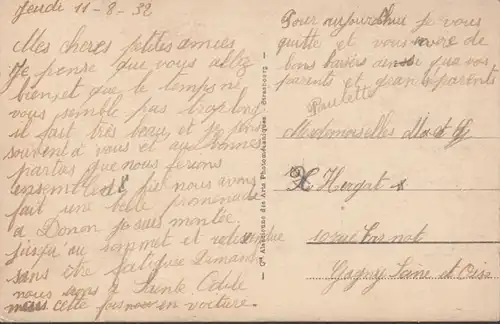 Jeudi 11-8-32
Mes cheres petites amies
Je pense que vous allez
bien, et que le temps ne
vous semble pas trop long
il fait très beau, et je pense
souvent a vous et aux bonnes
parties que nous ferons
ensemble nous avons
fait une belle promenade
a Donon je suis montée
jusqu'au sommet et redescendue
sans être fatiguée Dimanche
nous irons a Sainte Odile
mais cette fois en voiture.
Pour aujourd'hui je vous
quitte et vous envoie de
bons baisers ainsi que vos
parents et grands parents
Paulette
Cie Alsacienne des Arts Photomécaniques - Strasbourg
Mesdemoiselles M et G
Hergat
10 rue
Gagny Seine et Oise